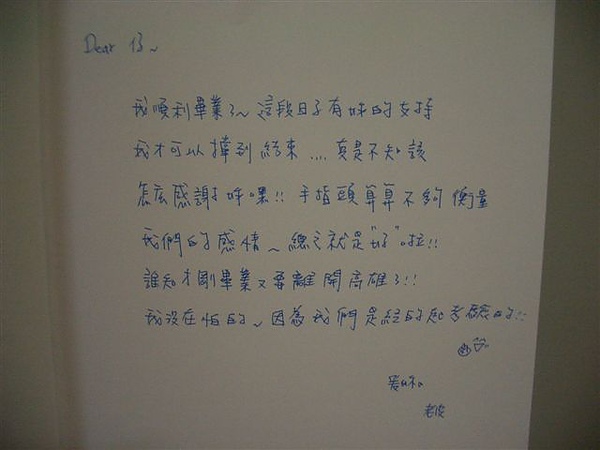 Dear 仔~
我順利畢業了~ 這段日子有妳的支持
我才可以撐到結束.... 真是不知該
怎麼感謝妳嘿!! 手指頭算算不夠衡量
我們的感情~ 總之就是"好"啦!!
誰知才剛畢業又要離開高雄了!!
我沒在怕的~ 因為我們是經的起考驗的!!
愛妳的
老皮